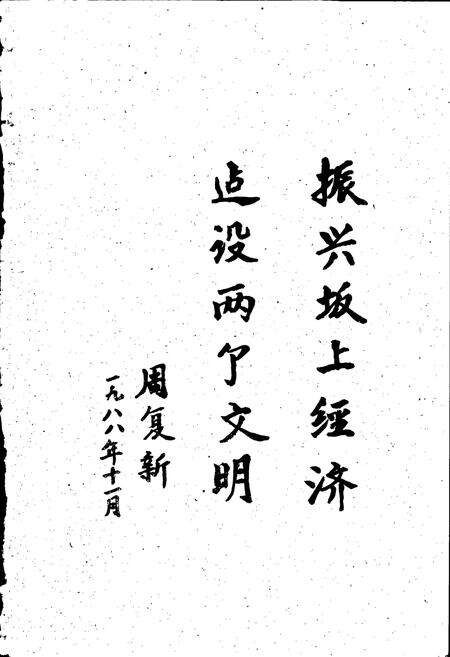 振兴坂上經济
建设两个文明
周复新
一九八八年十一月